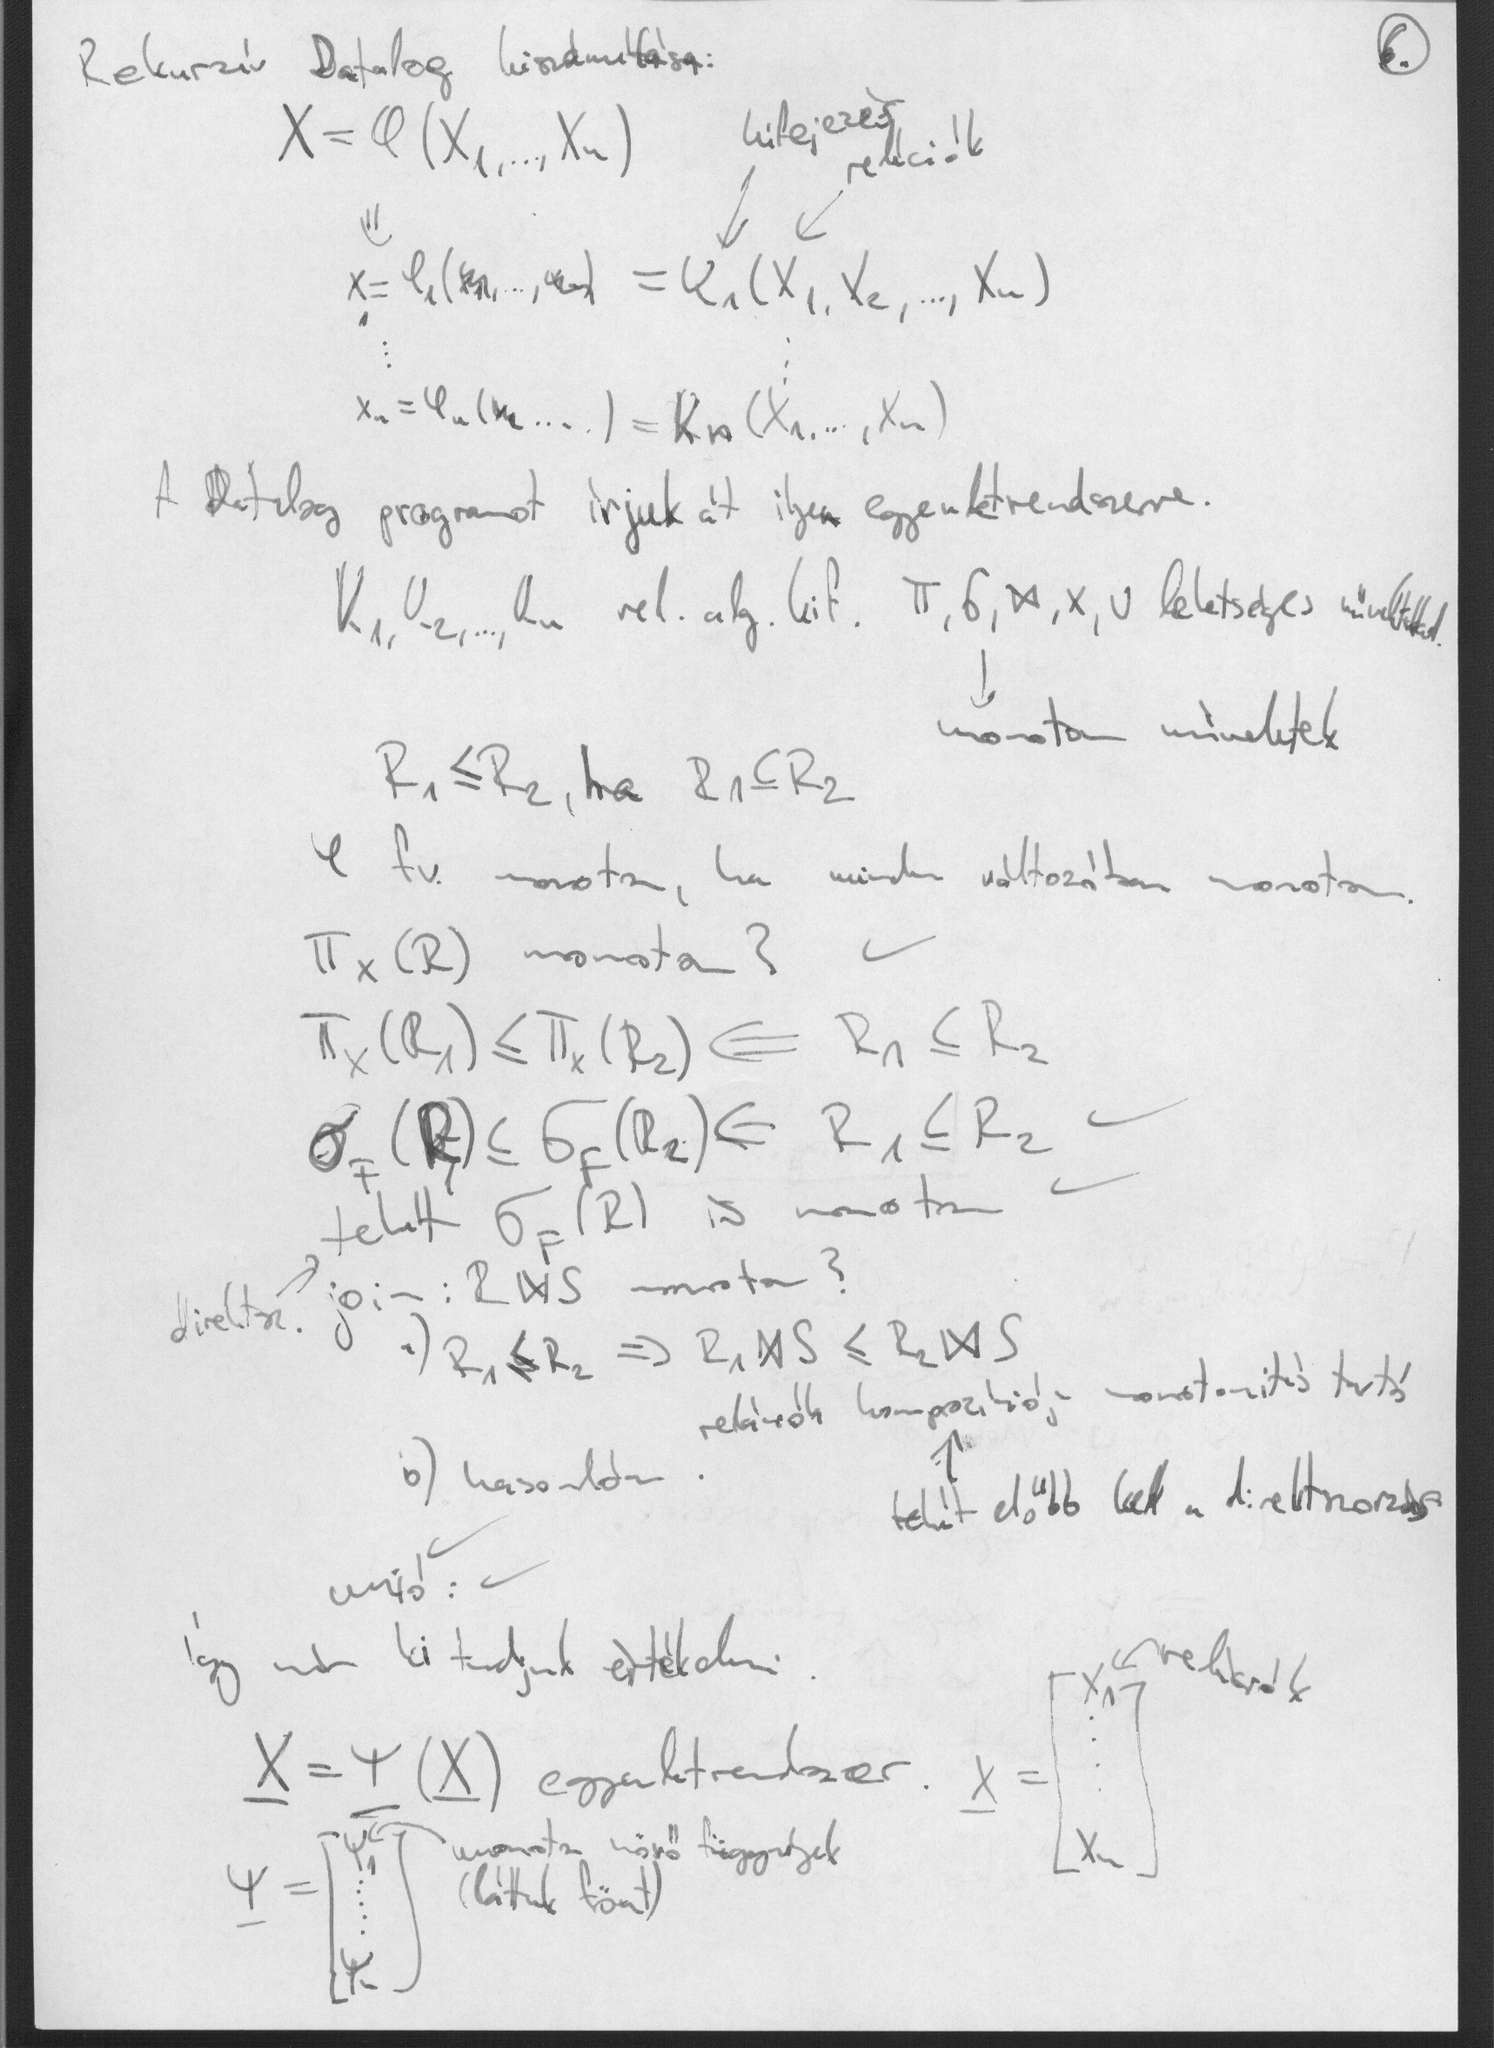 6.
Rekurzív Datalog kiszámítása:
X = φ(X₁,...,Xₙ)
kifejezés
relációk
x₁ = φ₁(x₁,...,xₙ) = K₁(X₁, X₂, ..., Xₙ)
⋮ ⋮
xₙ = φₙ(x₁ ....) = Kₙ(X₁, ..., Xₙ)
A Datalog programot írjuk át ilyen egyenletrendszerre.
K₁, K₂, ..., Kₙ rel. alg. kif. π, σ, ⋈, ×, ∪ lehetséges műveletekkel.
↓
monoton műveletek
R₁ ≤ R₂, ha R₁ ⊆ R₂
φ fv. monoton, ha minden változóban monoton.
π_X(R) monoton? ✓
π_X(R₁) ≤ π_X(R₂) ⇐ R₁ ≤ R₂
σ_F(R₁) ≤ σ_F(R₂) ⇐ R₁ ≤ R₂ ✓
tehát σ_F(R) is monoton ✓
direktsz. ↗ join: R ⋈ S monoton?
a) R₁ ≤ R₂ ⇒ R₁ ⋈ S ≤ R₂ ⋈ S
relációk kompozíciója monotonitás tartó
↑
b) hasonlóan.
tehát előbb kell a direktszorzás
✓
unió: ✓
Így már ki tudjuk értékelni.
X = Ψ(X) egyenletrendszer.
X = [X₁ ⋮ Xₙ] ← relációk
Ψ = [Ψ₁ ⋮ Ψₙ] ← monoton növő függvények
(láttuk fönt)